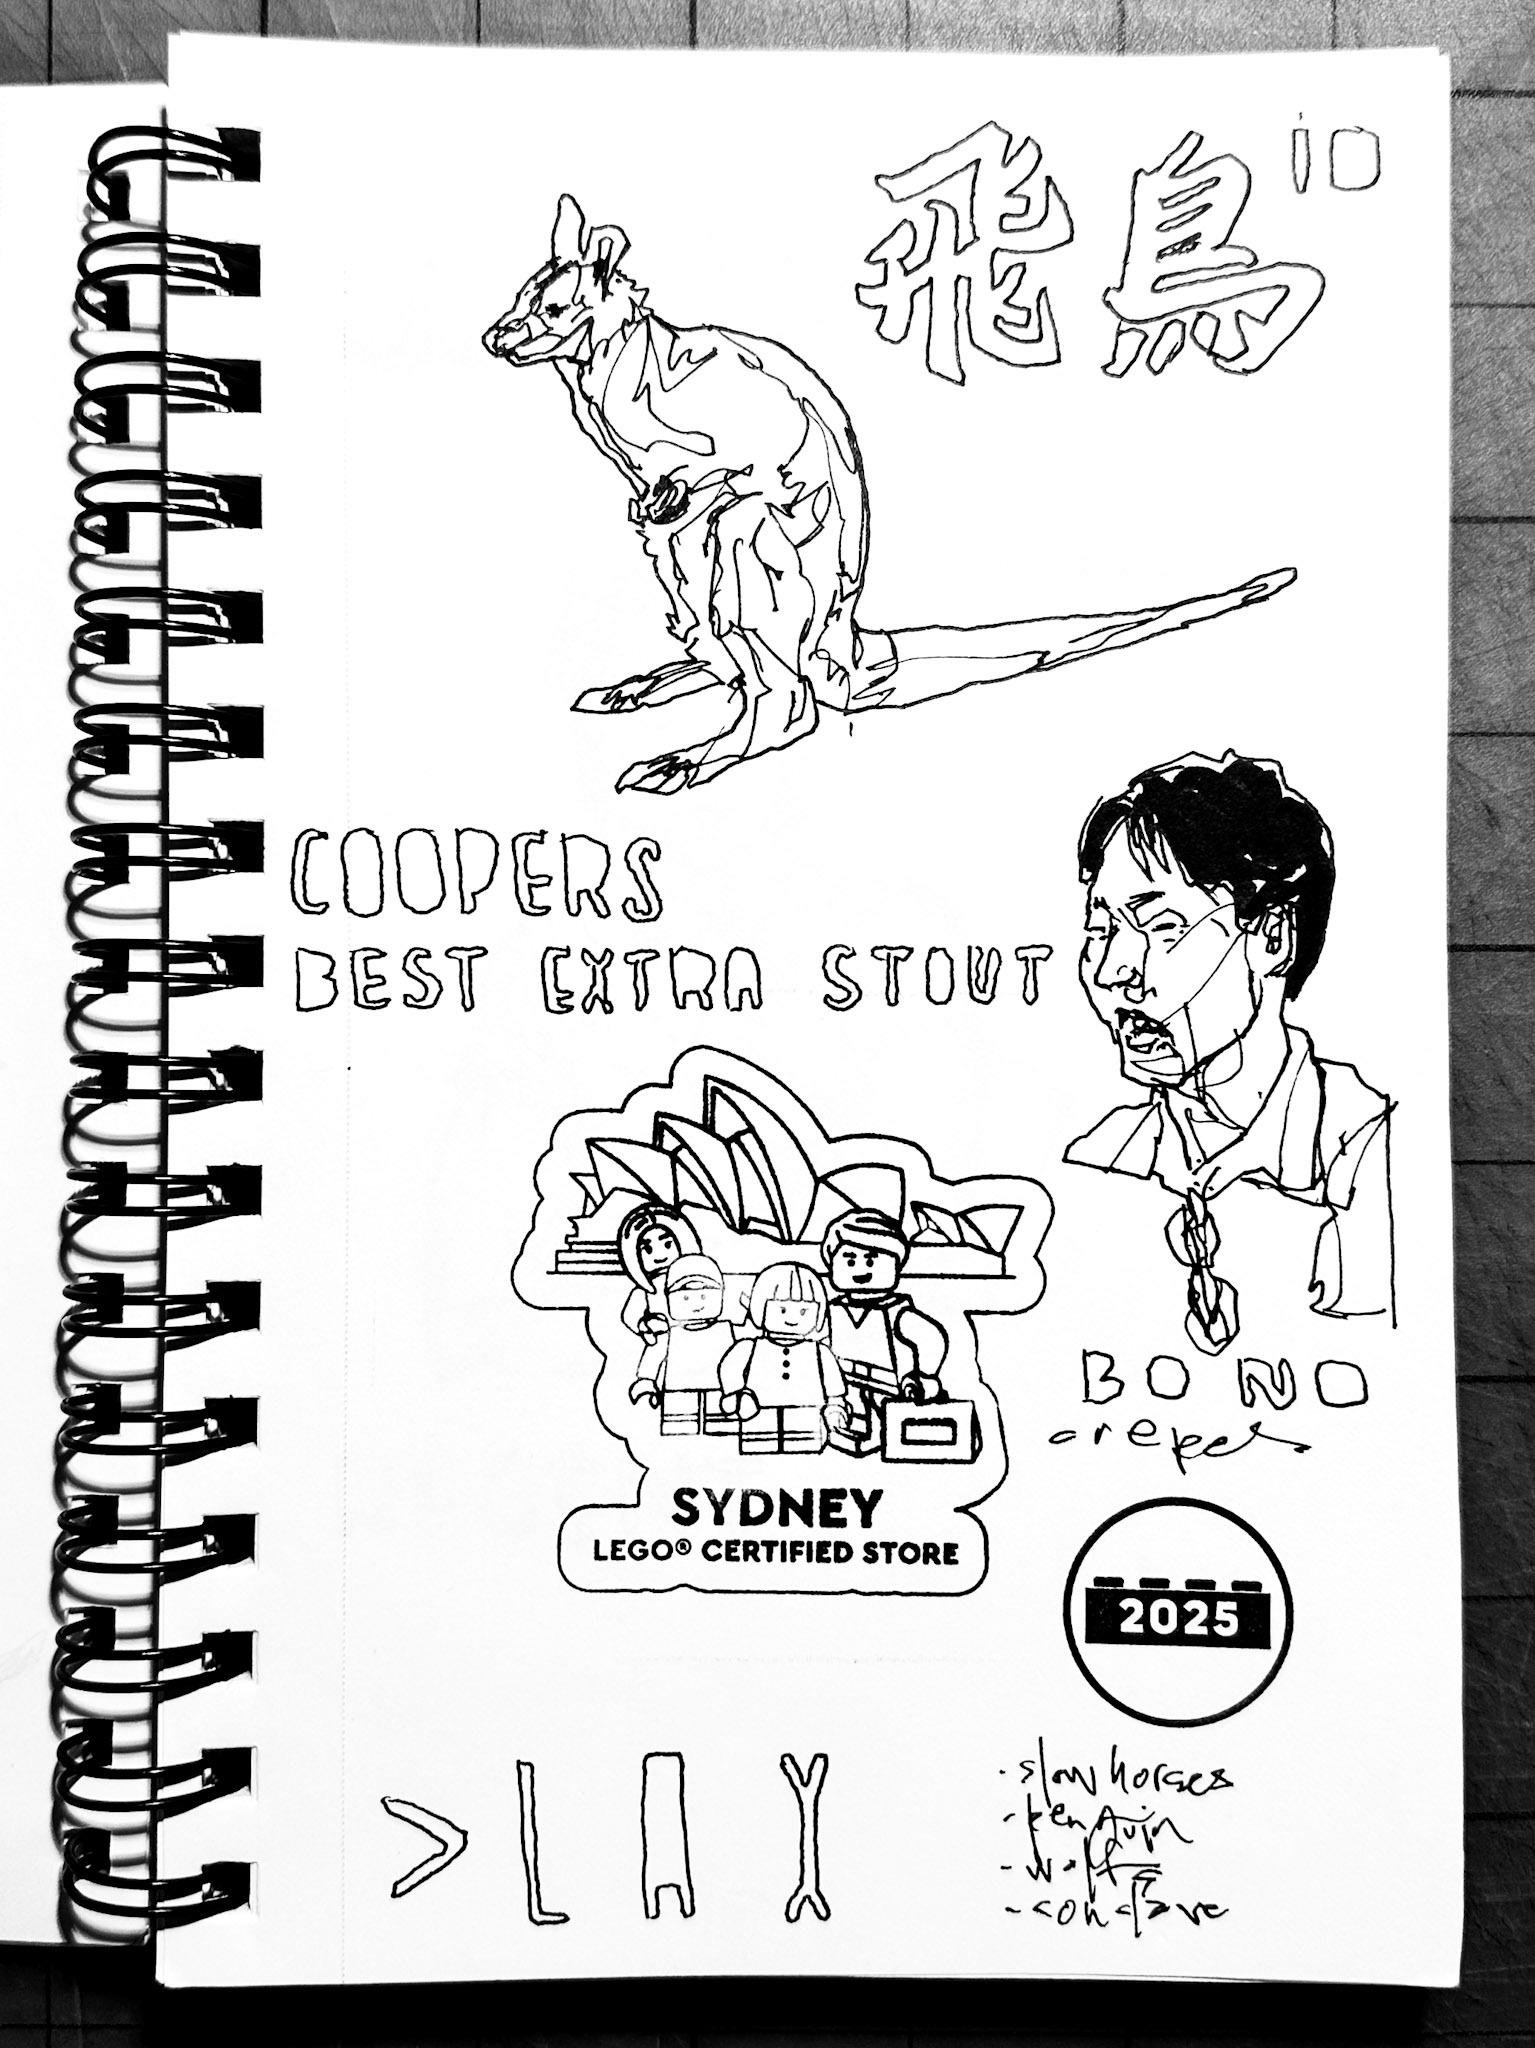 飛鳥 io
COOPERS
BEST EXTRA STOUT
BONO
crepes
SYDNEY
LEGO® CERTIFIED STORE
2025
>LAY
- slow horses
- penguin
- wolfs
- conclave